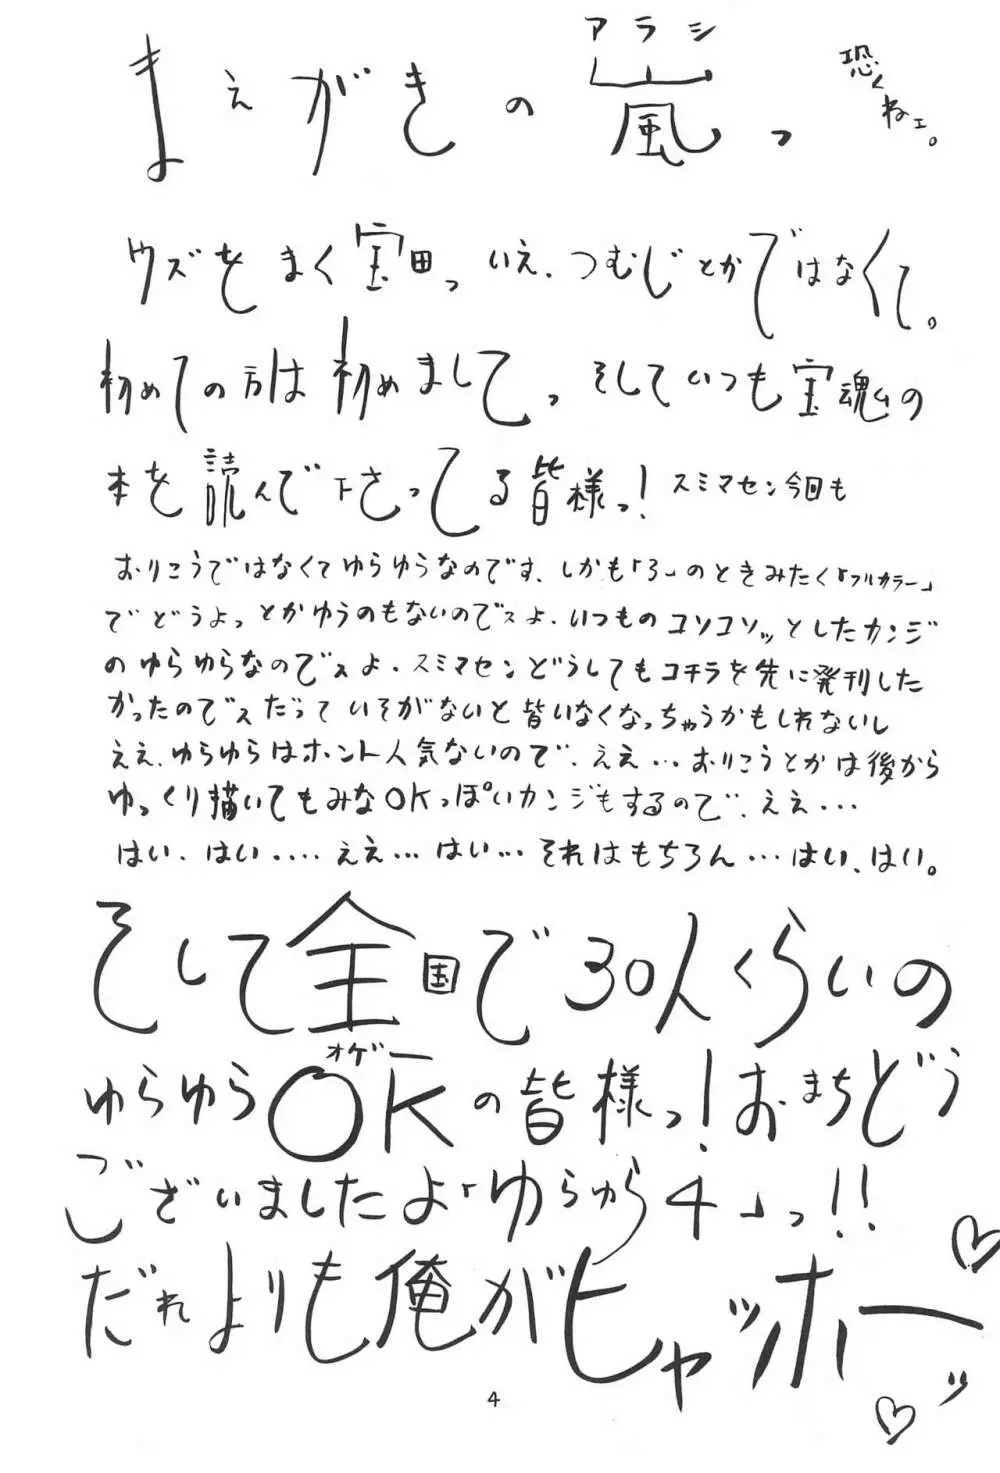 アラシ
まえがきの嵐っ
恐くねェ。
ウズをまく宝田っ いえ、つむじとかではなくて。
初めての方は初めまして、そしていつも宝魂ムの
本を読んで下さってる皆様っ！スミマセン今回も
おりこうではなくてゆらゆらなのです、しかも「3」のときみたく「フルカラー」
でどうよっとかゆうのもないのでスよ、いつものコソコソッとしたカンジ
のゆらゆらなのでスよ、スミマセンどうしてもコチラを先に発刊した
かったのでスだっていそがないと皆いなくなっちゃうかもしれないし
ええ、ゆらゆらはホント人気ないので、ええ…おりこうとかは後から
ゆっくり描いてもみなOKっぽいカンジもするので、ええ・・・
はい、はい‥‥ええ…はい…それはもちろん…はい、はい。
そして全国で30人くらいの
オゲー
ゆらゆらOKの皆様っ！おまちどう
ございましたよ「ゆらゆら4」っ！！
だれよりも俺がヒャッホーッ
4